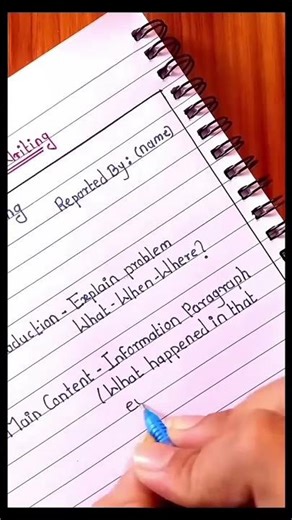 Writing
Reported By: (name)
duction - Explain problem
What - When - Where?
Main Content - Information Paragraph
(What happened in that
ev